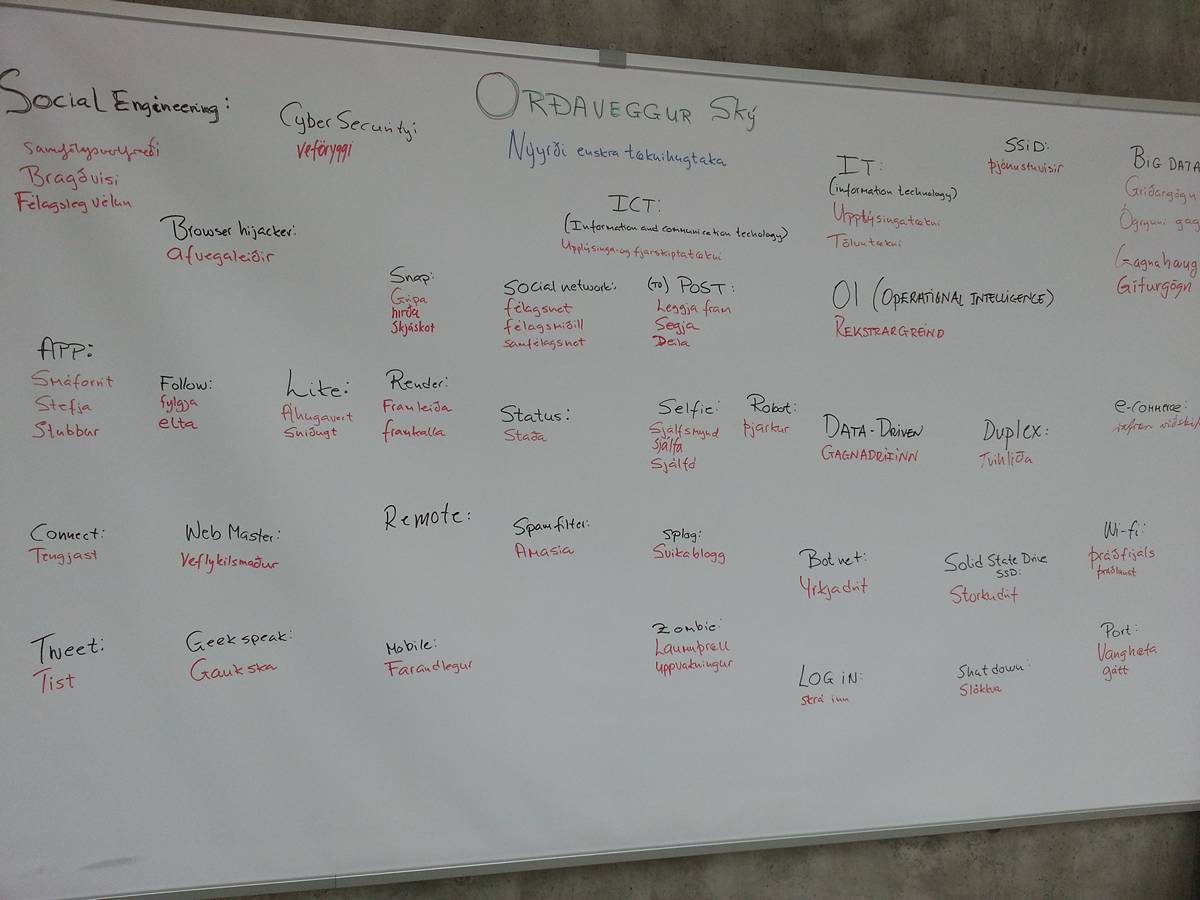 ORÐAVEGGUR Ský
Nýyrði enskra tæknihugtaka
Social Engineering:
Samfélagsverkfræði
Bragðvísi
Félagsleg vélun
Cyber Security:
Veföryggi
Browser hijacker:
Afvegaleiðir
ICT:
(Information and communication techology)
Upplýsinga-og fjarskiptatækni
IT:
(information technology)
Upplýsingatækni
Tölvutækni
SSiD:
Þjónustuvísir
BIG DATA
Gríðargögn
Ógrynni gag
Gagnahaug
Gífurgögn
Snap:
Grípa
hirða
Skjáskot
Social network:
félagsnet
félagsmiðill
samfélagsnet
(to) POST:
Leggja fram
Segja
Deila
OI (OPERATIONAL INTELLIGENCE)
REKSTRARGREIND
APP:
Smáforrit
Stefja
Stubbur
Follow:
fylgja
elta
Lite:
Áhugavert
Sniðugt
Render:
Framleiða
framkalla
Status:
Staða
Selfie:
Sjálfsmynd
Sjálfa
Sjálfd
Robot:
Þjarkur
DATA-DRIVEN
GAGNADRIFINN
Duplex:
Tvihliða
e-commerce:
Connect:
Tengjast
Web Master:
Veflykilsmaður
Remote:
Spamfilter:
Amasía
Splog:
Svikablogg
Botnet:
Yrkjadrit
Solid State Drive
SSD:
Storkudrif
Wi-fi:
Þráðfrjáls
Þráðlaust
Tweet:
Tíst
Geek speak:
Gaukska
Mobile:
Farandlegur
Zombie:
uppvakningur
LOG iN:
Skrá inn
Shatdown:
Slökkva
Port:
Vanghefa
gátt